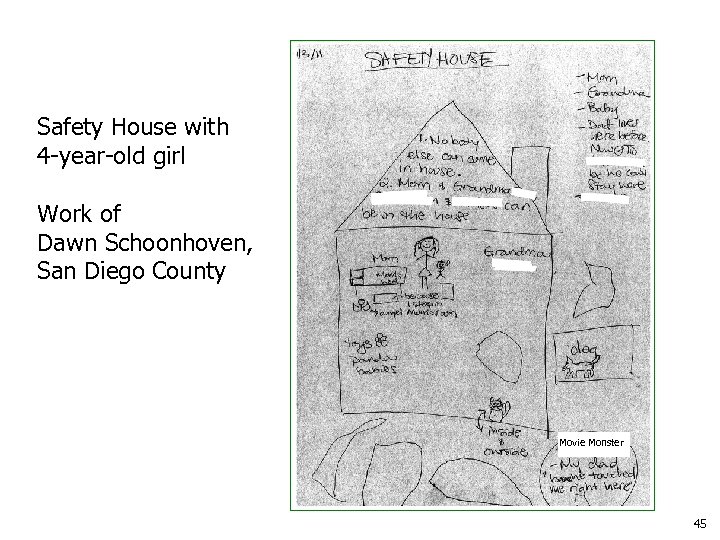 1/31/11
SAFETY HOUSE
Safety House with
4-year-old girl
Work of
Dawn Schoonhoven,
San Diego County
- Mom
- Grandma
- Baby
- Dad lived
here before
he could
stay here
1. Nobody
else can come
in house.
2. Mom & Grandma
& can
be in the house
Mom
Grandma
because
I sleep in
toys &
panda
babies
dog
inside
&
outside
Movie Monster
- My dad
touched
me right here
45